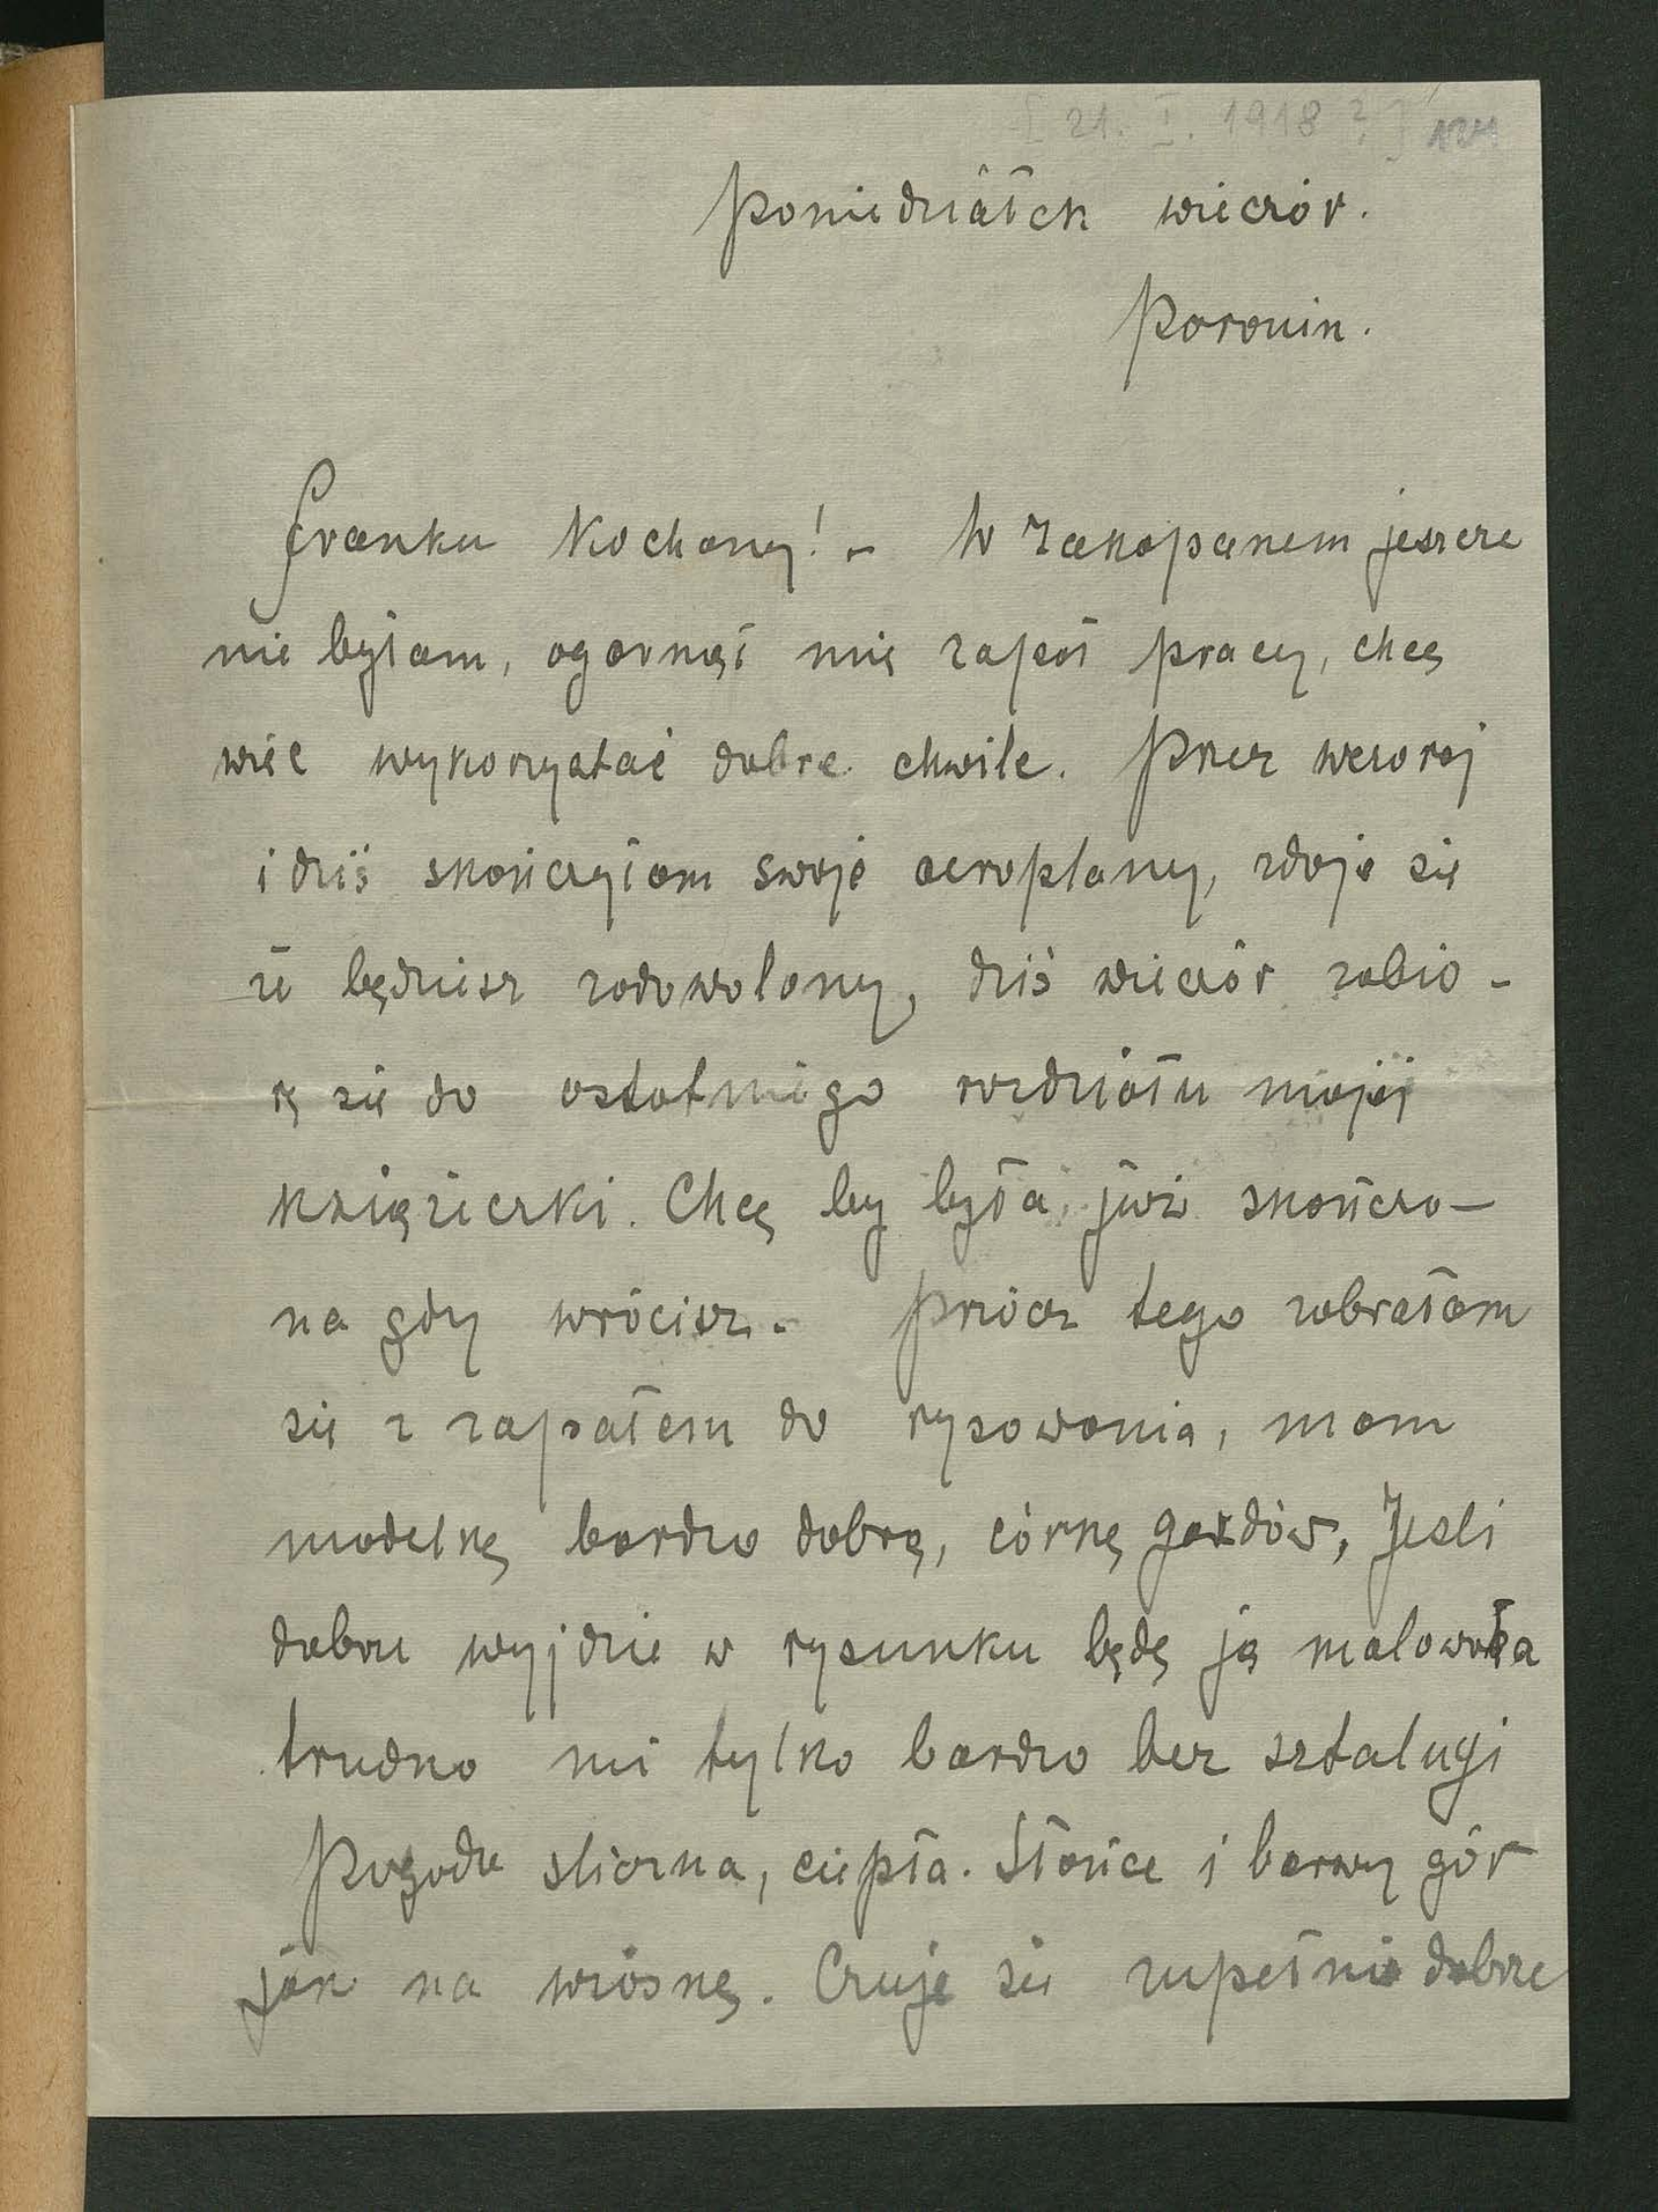 [21. I. 1918?]
Poniedziałek wieczór.
Poronin.
Franku Kochany! – W Zakopanem jeszcze
nie byłam, ogarnął mię zapał pracy, chcę
więc wykorzystać dobre chwile. Przez wczoraj
i dziś skończyłam swoje aeroplany, zdaje się
że będziesz zadowolony, dziś wieczór zabio-
rę się do ostatniego rozdziału mojej
książeczki. Chcę by była już skończo-
na gdy wrócisz. – Prócz tego zabrałam
się z zapałem do rysowania, mam
modelkę bardzo dobrą, córkę gazdów, Jesli
dobrze wyjdzie w rysunku będę ją malowała
trudno mi tylko bardzo bez sztalugi
Pogoda sliczna, ciepła. Słońce i barwy gór
jak na wiosnę. Czuję się zupełnie dobrze